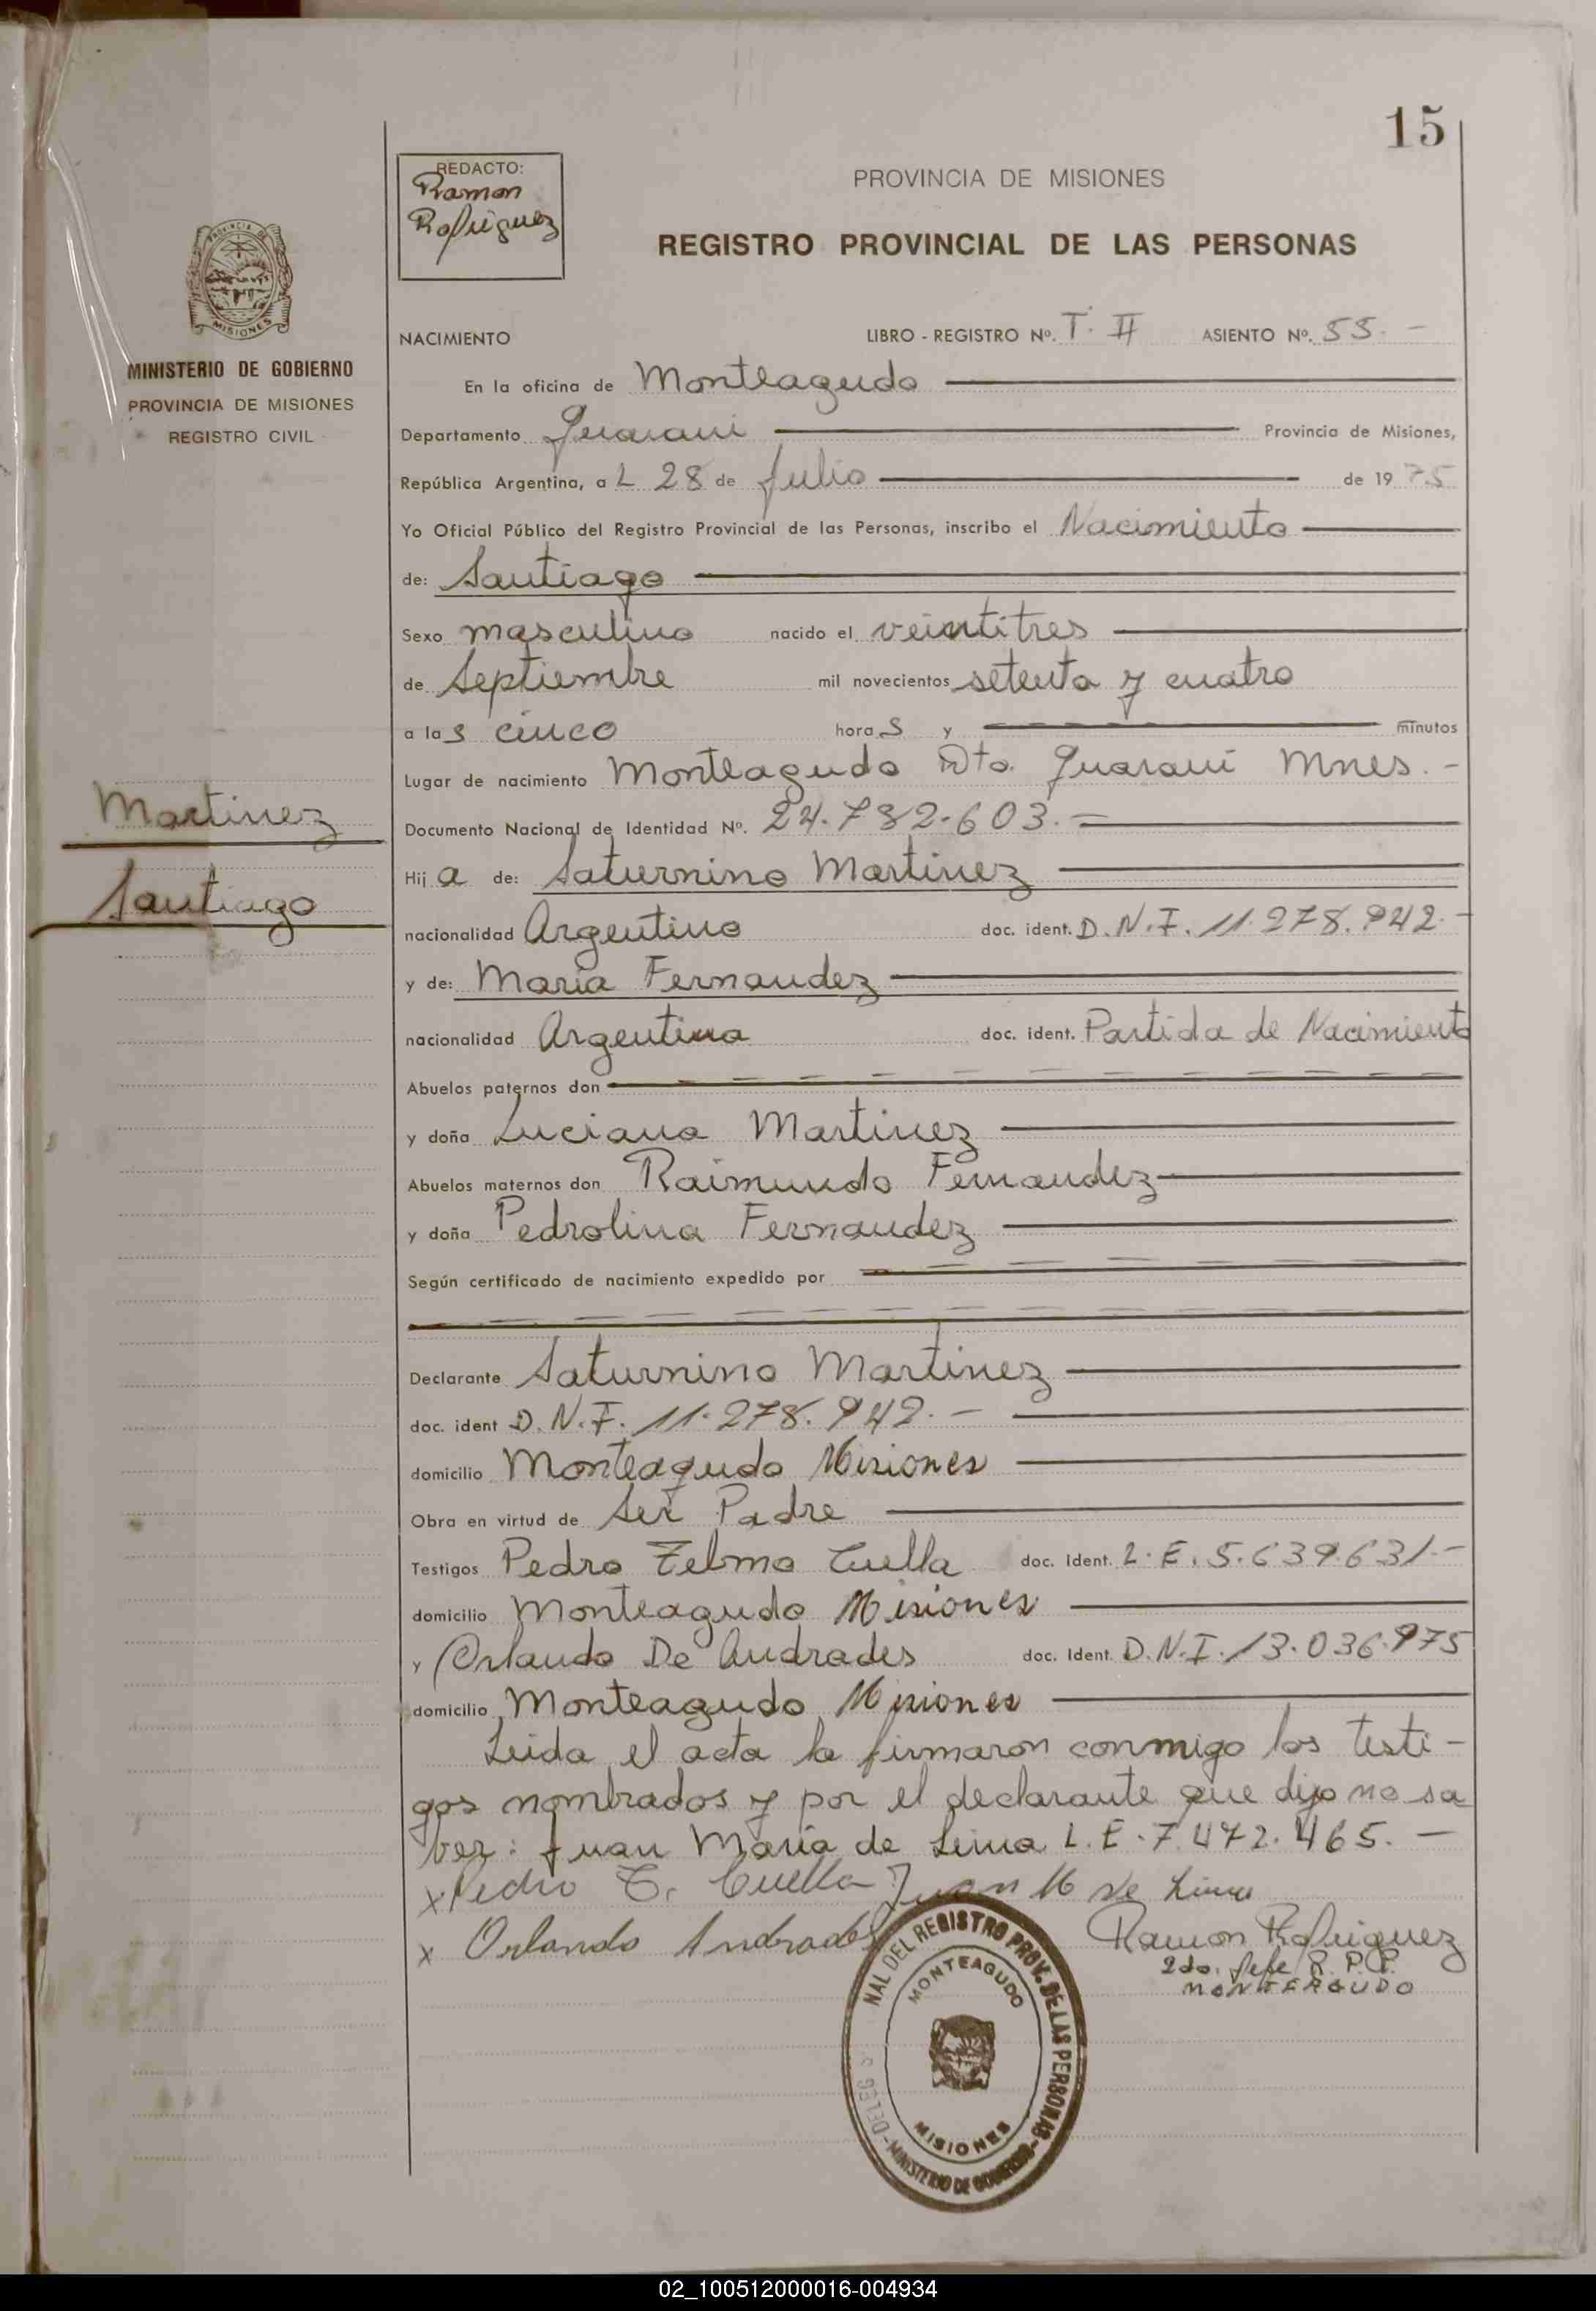 15
REDACTO:
Ramon
Rodriguez
PROVINCIA DE MISIONES
REGISTRO PROVINCIAL DE LAS PERSONAS
MISIONES
MINISTERIO DE GOBIERNO
PROVINCIA DE MISIONES
REGISTRO CIVIL
NACIMIENTO LIBRO - REGISTRO Nº. T. II ASIENTO Nº. 55. -
En la oficina de Monteagudo
Departamento Guarani Provincia de Misiones,
República Argentina, a L 28 de Julio de 1975
Yo Oficial Público del Registro Provincial de las Personas, inscribo el Nacimiento
de: Santiago
Sexo masculino nacido el veintitres
de Septiembre mil novecientos setenta y cuatro
a las cinco horas y - - - - minutos
Lugar de nacimiento Monteagudo Dto. Guarani Mnes. -
Martinez
Documento Nacional de Identidad Nº. 24.782.603. -
Hija de: Saturnino Martinez
Santiago
nacionalidad Argentino doc. ident. D.N.I. 11.278.942. -
y de: Maria Fernandez
nacionalidad Argentina doc. ident. Partida de Nacimiento
Abuelos paternos don - - - - - - - -
y doña Luciana Martinez
Abuelos maternos don Raimundo Fernandez
y doña Pedrolina Fernandez
Según certificado de nacimiento expedido por - - - - - -
Declarante Saturnino Martinez
doc. ident D.N.I. 11.278.942. -
domicilio Monteagudo Misiones
Obra en virtud de Ser Padre
Testigos Pedro Telmo Cuella doc. Ident. L.E. 5.639.631. -
domicilio Monteagudo Misiones
y Orlando De Andrades doc. Ident. D.N.I. 13.036.975
domicilio Monteagudo Misiones
Leida el acta la firmaron conmigo los testi-
gos nombrados y por el declarante que dijo no sa
ber: Juan Maria de Lima L.E. 7.472.465. -
x Pedro T. Cuella Juan M de Lima
x Orlando Andrades Ramon Rodriguez
2do. Jefe R.P.P.
MONTEAGUDO
NAL DEL REGISTRO PROV. DE LAS PERSONAS - MINISTERIO DE GOBIERNO - DELEG
MONTEAGUDO
MISIONES
02_100512000016-004934